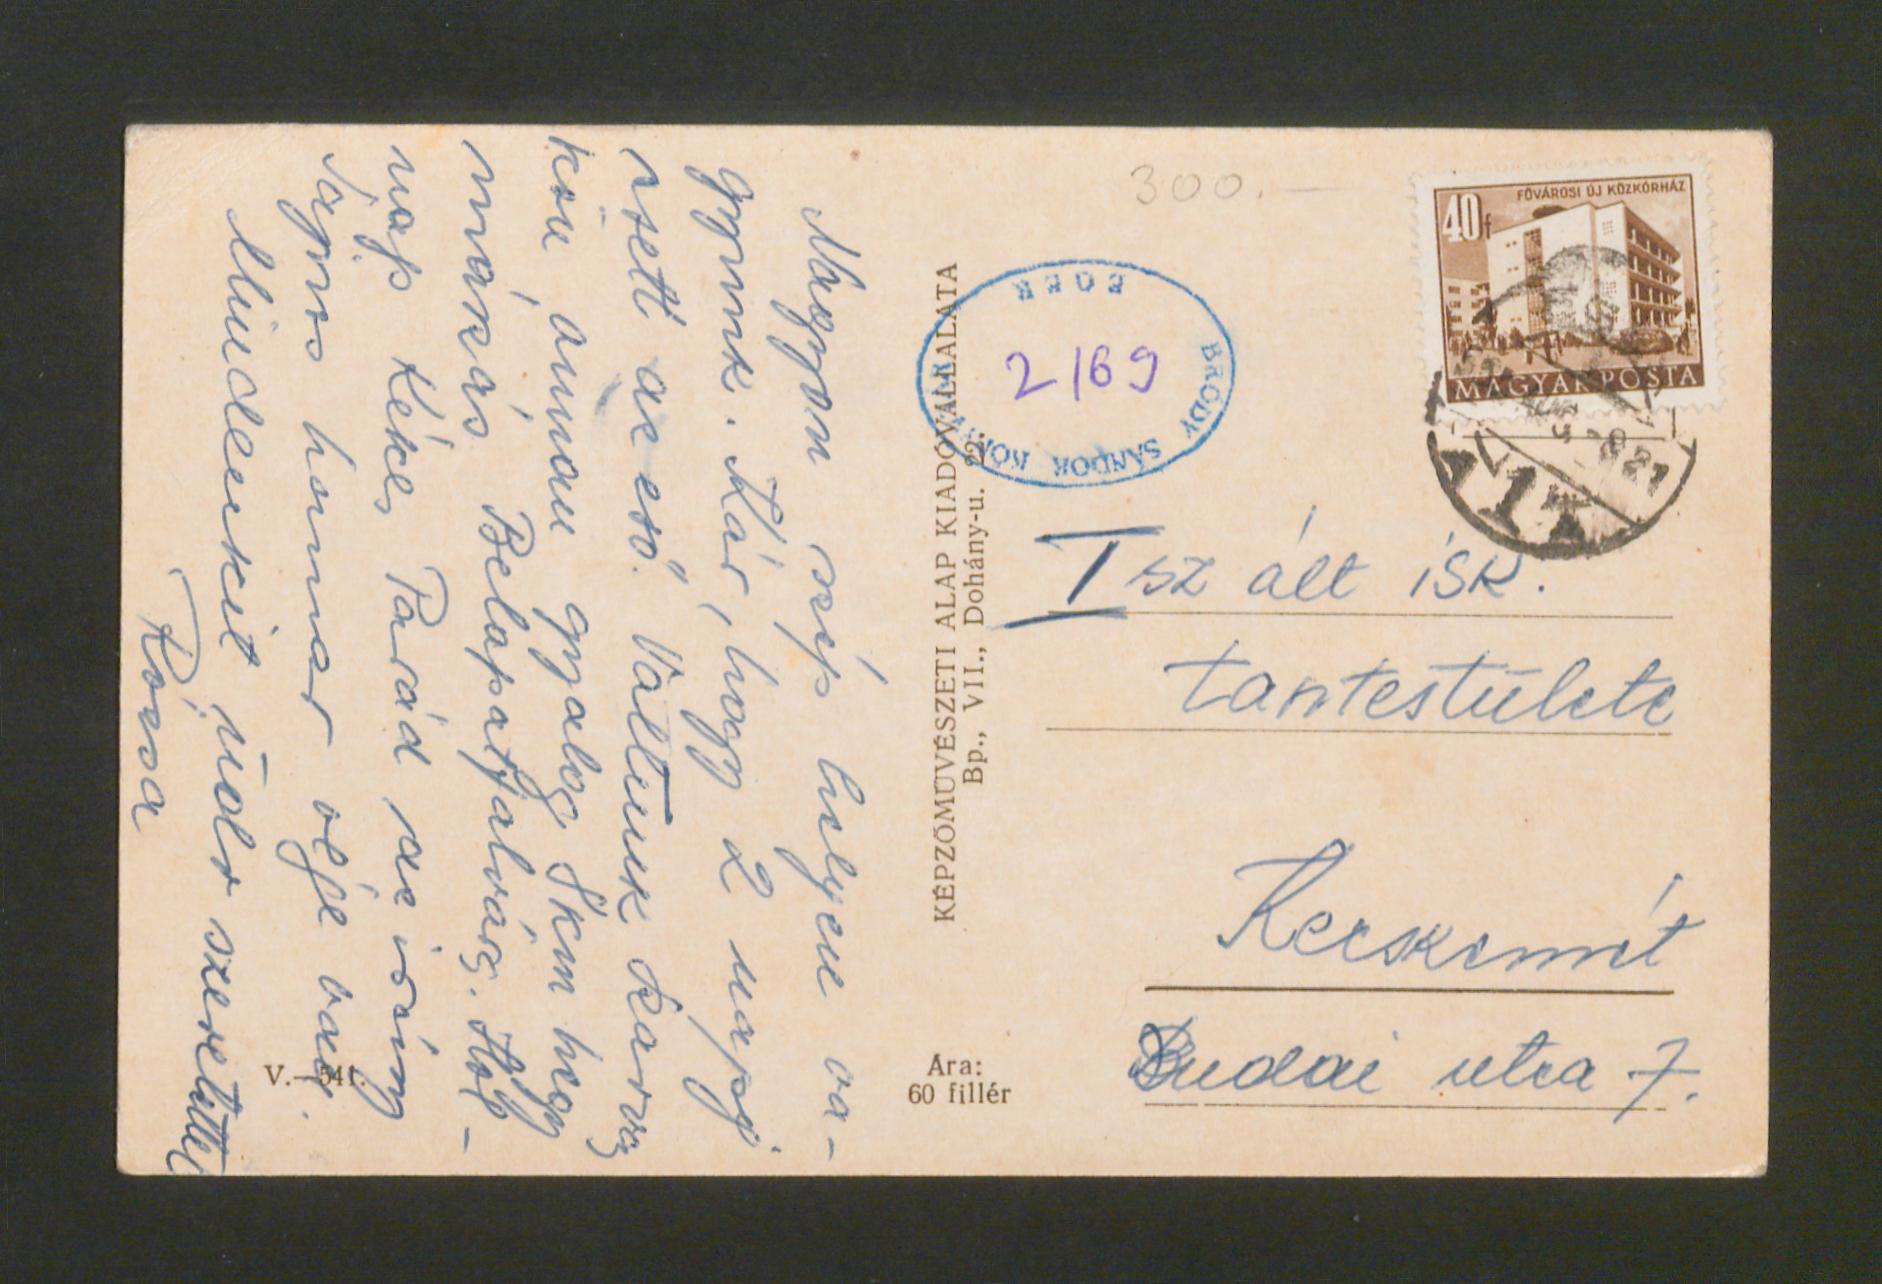 Nagyon szép helyen va-
gyunk. Kár, hogy 2 napj
esett az eső. Voltunk Szarvas
kőn onnan gyalog
mókás Belapatfalvás. Hol-
nap Kékes, Parád az irány
Sajnos hamar vége van.
Mindenkit üdv. szeretettel
Rózsa
V.—541.
KÉPZŐMŰVÉSZETI ALAP KIADÓVÁLLALATA
Bp., VII., Dohány-u. 22.
Ára:
60 fillér
300.—
BRÓDY SÁNDOR KÖNY
2/69
FŐVÁROSI ÚJ KÖZKÓRHÁZ
40 f
MAGYAR POSTA
I sz ált isk.
tantestülete
Kecskemét
Budai utca 7.